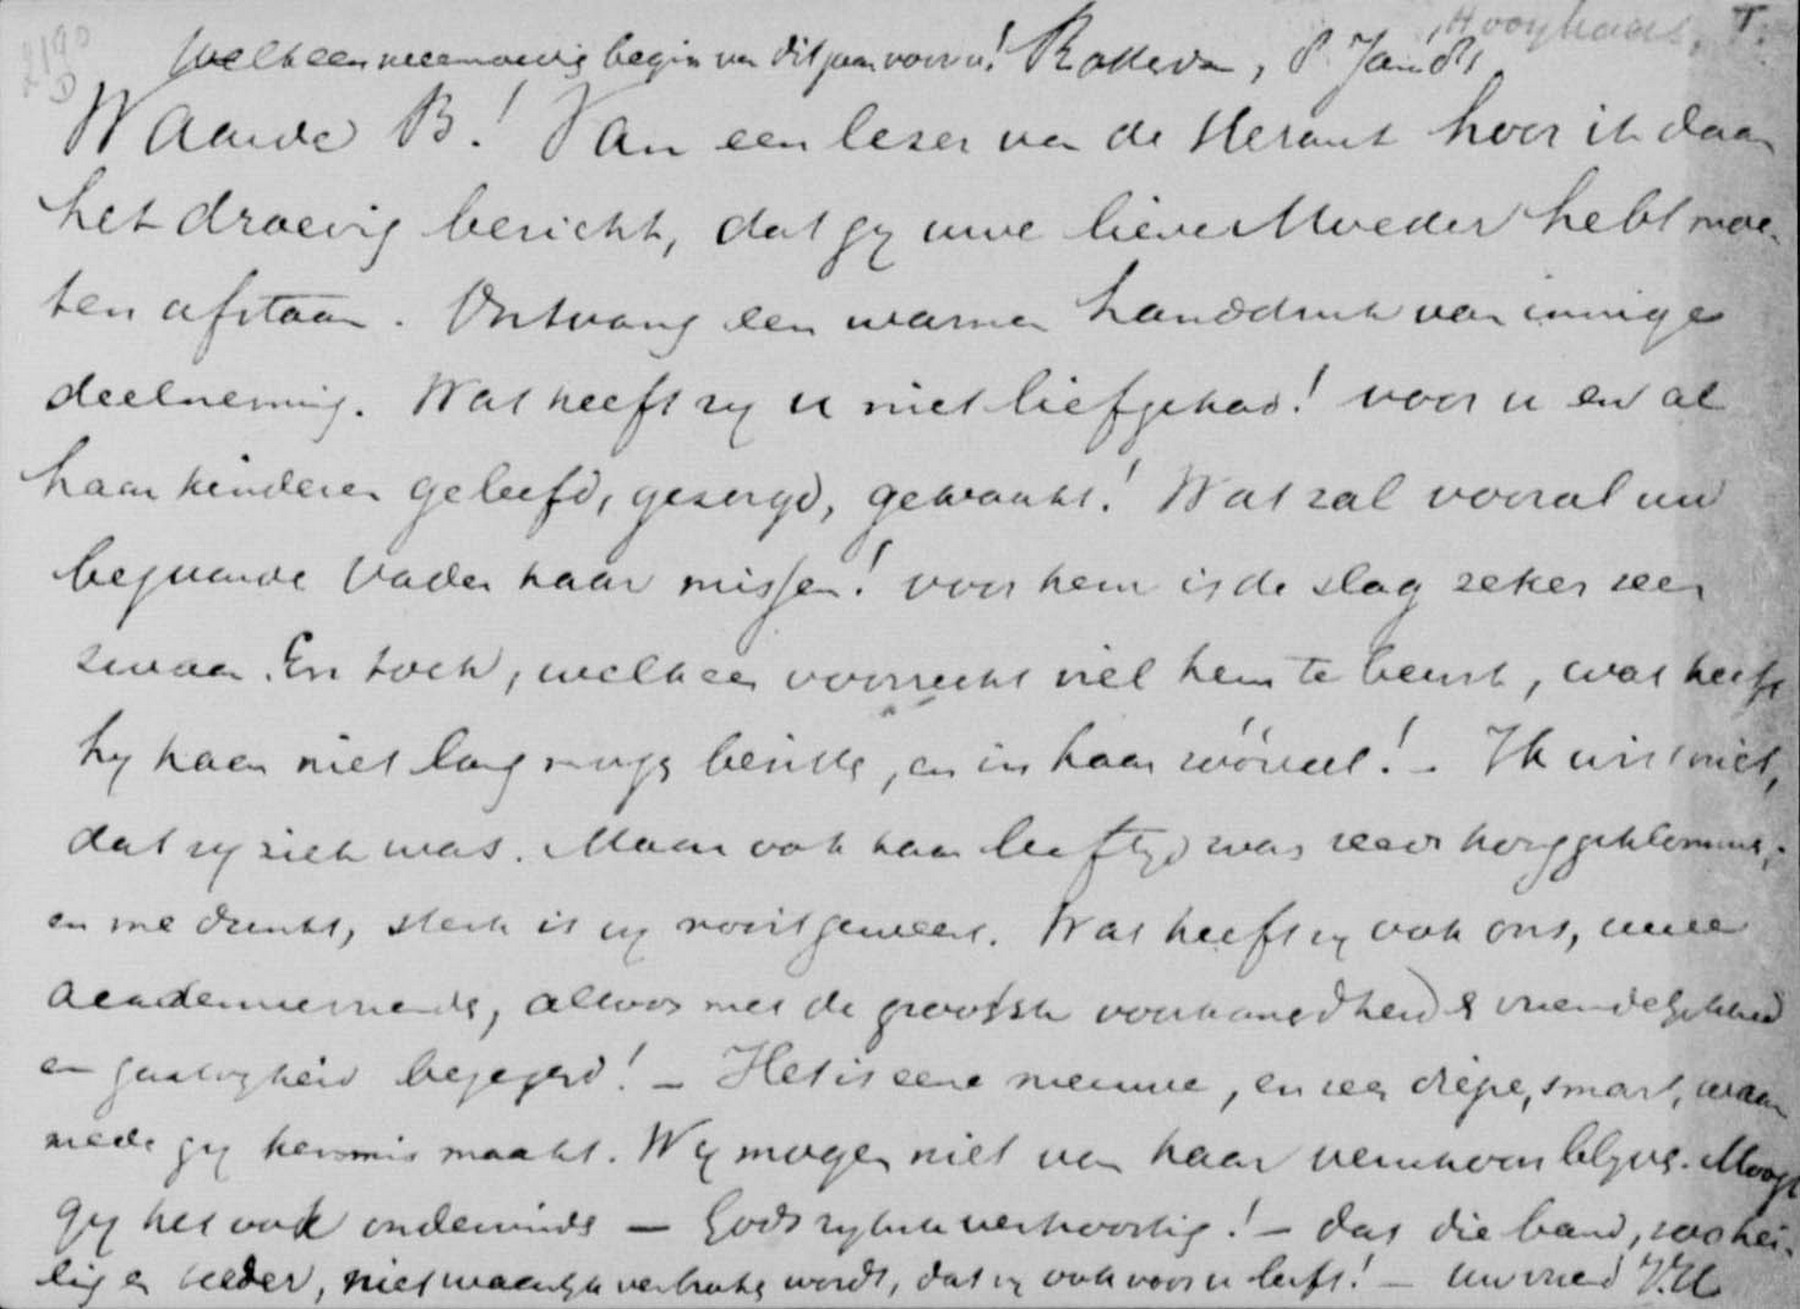 Hooykaas, T.
2190
D
Welk een weemoedig begin van dit jaar voor u! Rotterdam, 8 Jan. 81
Waarde B.! Van een lezer van de Heraut hoor ik daar
het droevig bericht, dat gy uwe lieve Moeder hebt moe-
ten afstaan. Ontvang een warmen handdruk van innige
deelneming. Wat heeft zy u niet liefgehad! voor u en al
haar kinderen geleefd, gezorgd, gewaakt! Wat zal vooral uw
bejaarde Vader haar missen! voor hem is de slag zeker zeer
zwaar. En toch, welk een voorrecht viel hem te beurt, wat heeft
hy haar niet lang mogen bezitten, en in haar zóóveel! - Ik wist niet,
dat zy ziek was. Maar ook haar leeftyd was zeer hoog geklommen;
en me dunkt, sterk is zy nooit geweest. Wat heeft zy ook ons, uwe
academievrienden, altoos met de grootste voorkomendheid & vriendelykheid
en gastvryheid bejegend! - Het is eene nieuwe, en zeer diepe, smart, waar-
mede gy kennis maakt. Wy mogen niet van haar verschoon blyven. Moogt
gy het ook ondervinden - Gods rykste vertroosting! - dat die band, zoo hei-
lig en teeder, niet waarlyk verbroken wordt, dat zy ook voor u leeft! - uw vriend J.H.